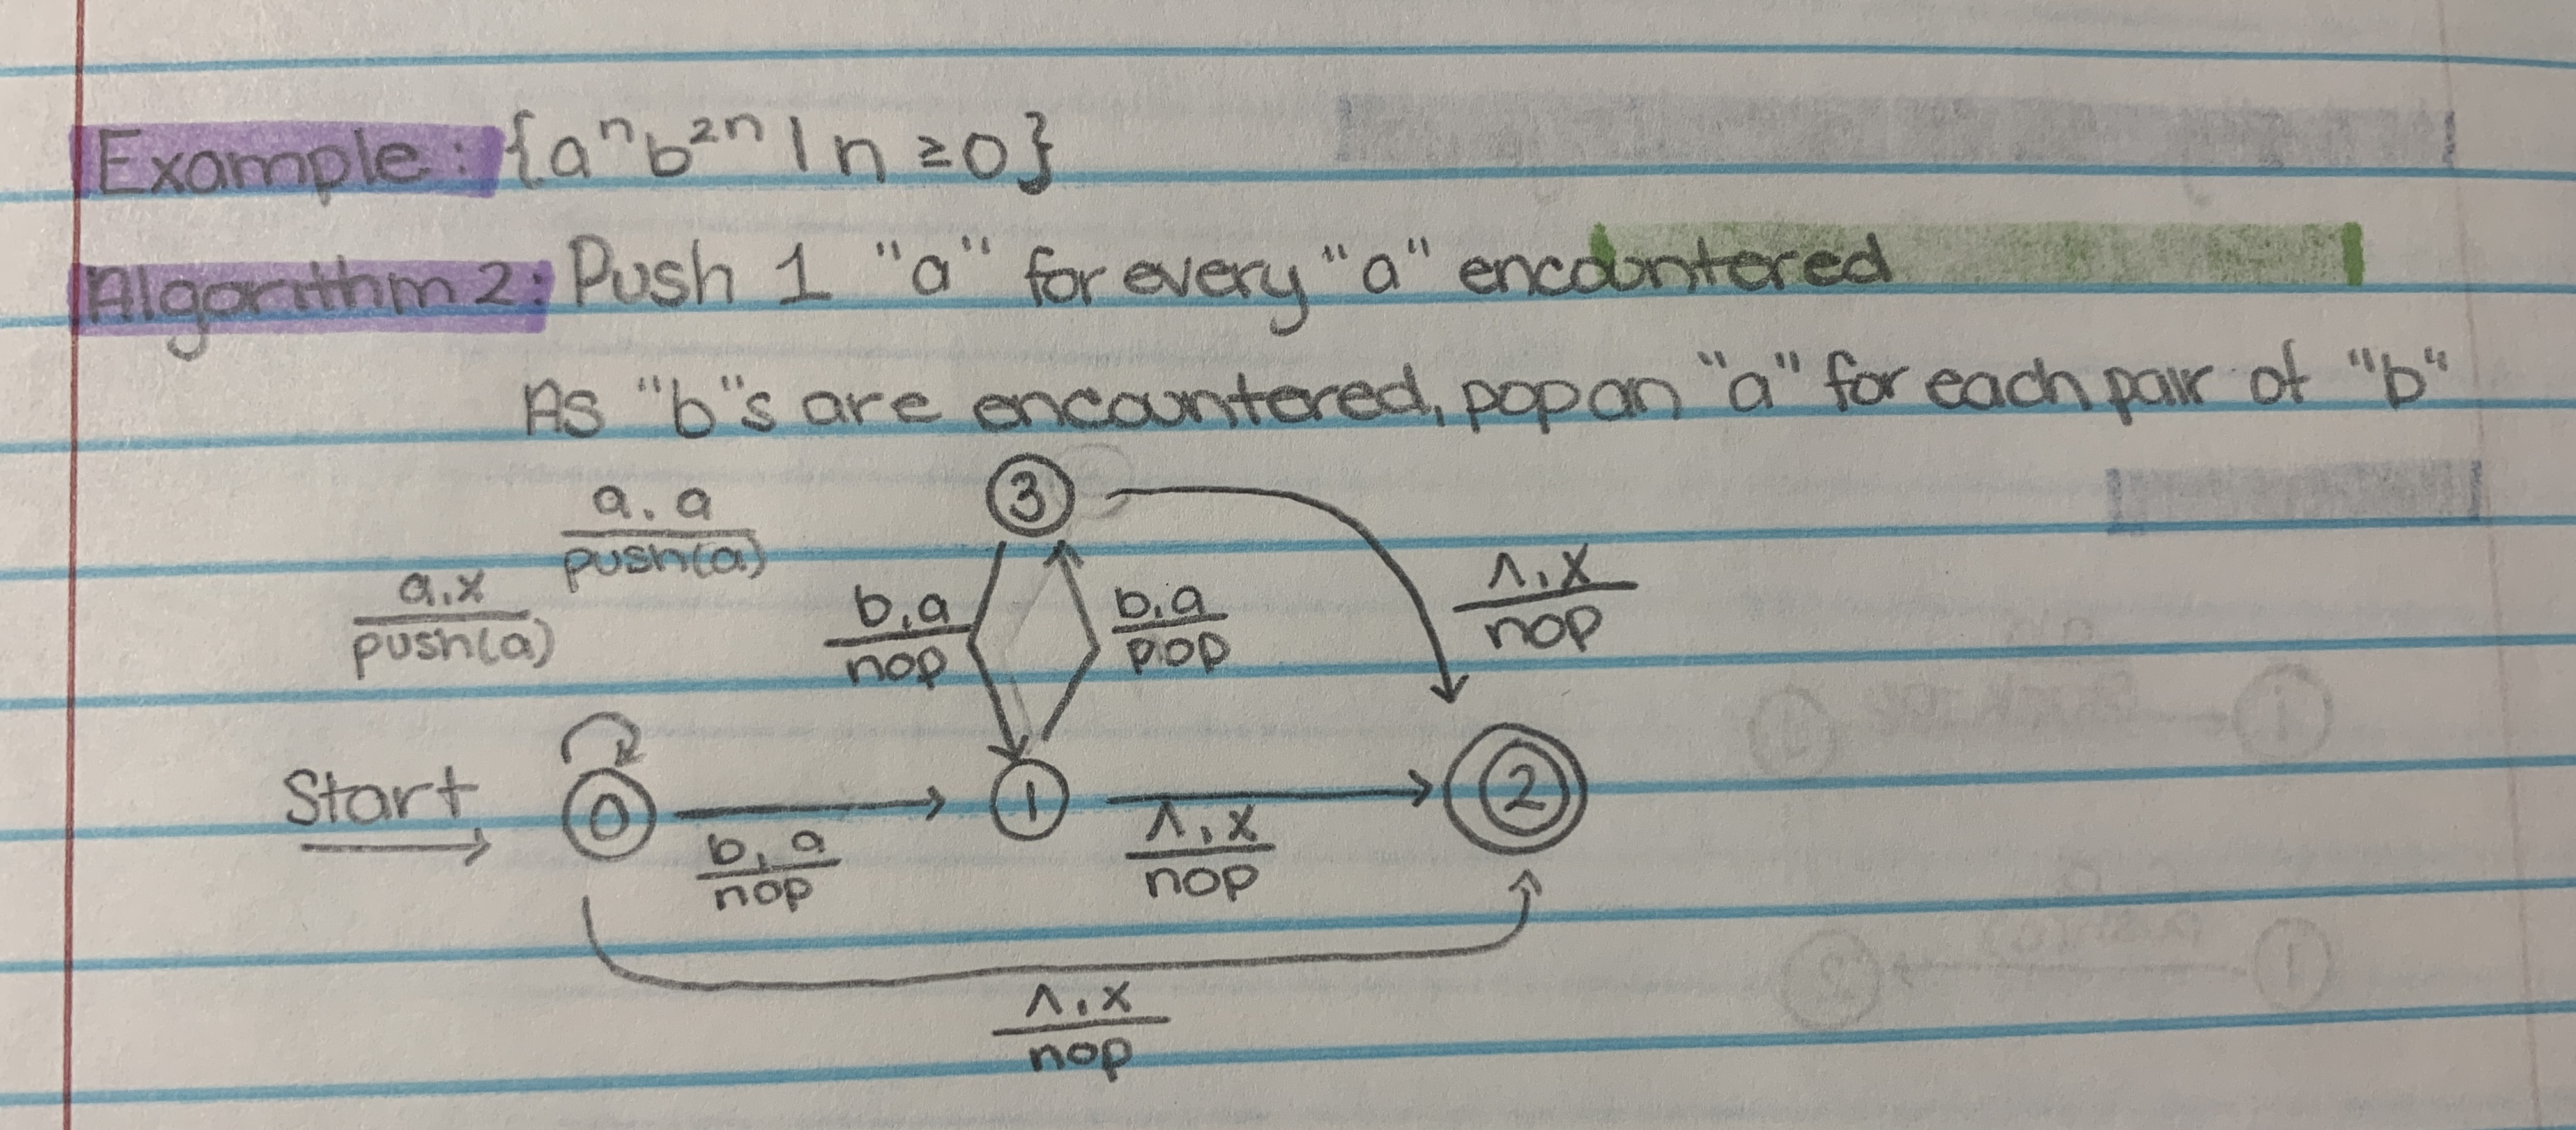 Example: {aⁿb²ⁿ | n ≥ 0}
Algorithm 2: Push 1 "a" for every "a" encountered
As "b"s are encountered, pop an "a" for each pair of "b"
a, a
push(a)
a, x
push(a)
3
b, a
nop
b, a
pop
Λ, x
nop
Start
0
b, a
nop
1
Λ, x
nop
2
Λ, x
nop